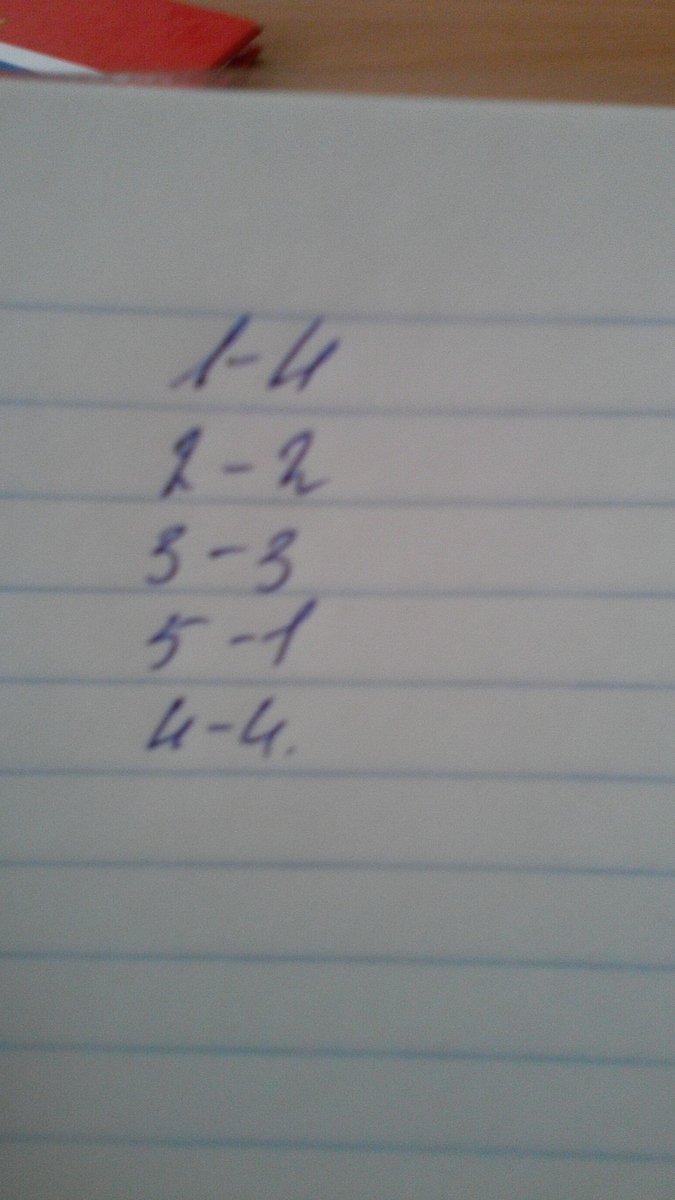 1-4
2-2
3-3
5-1
4-4.